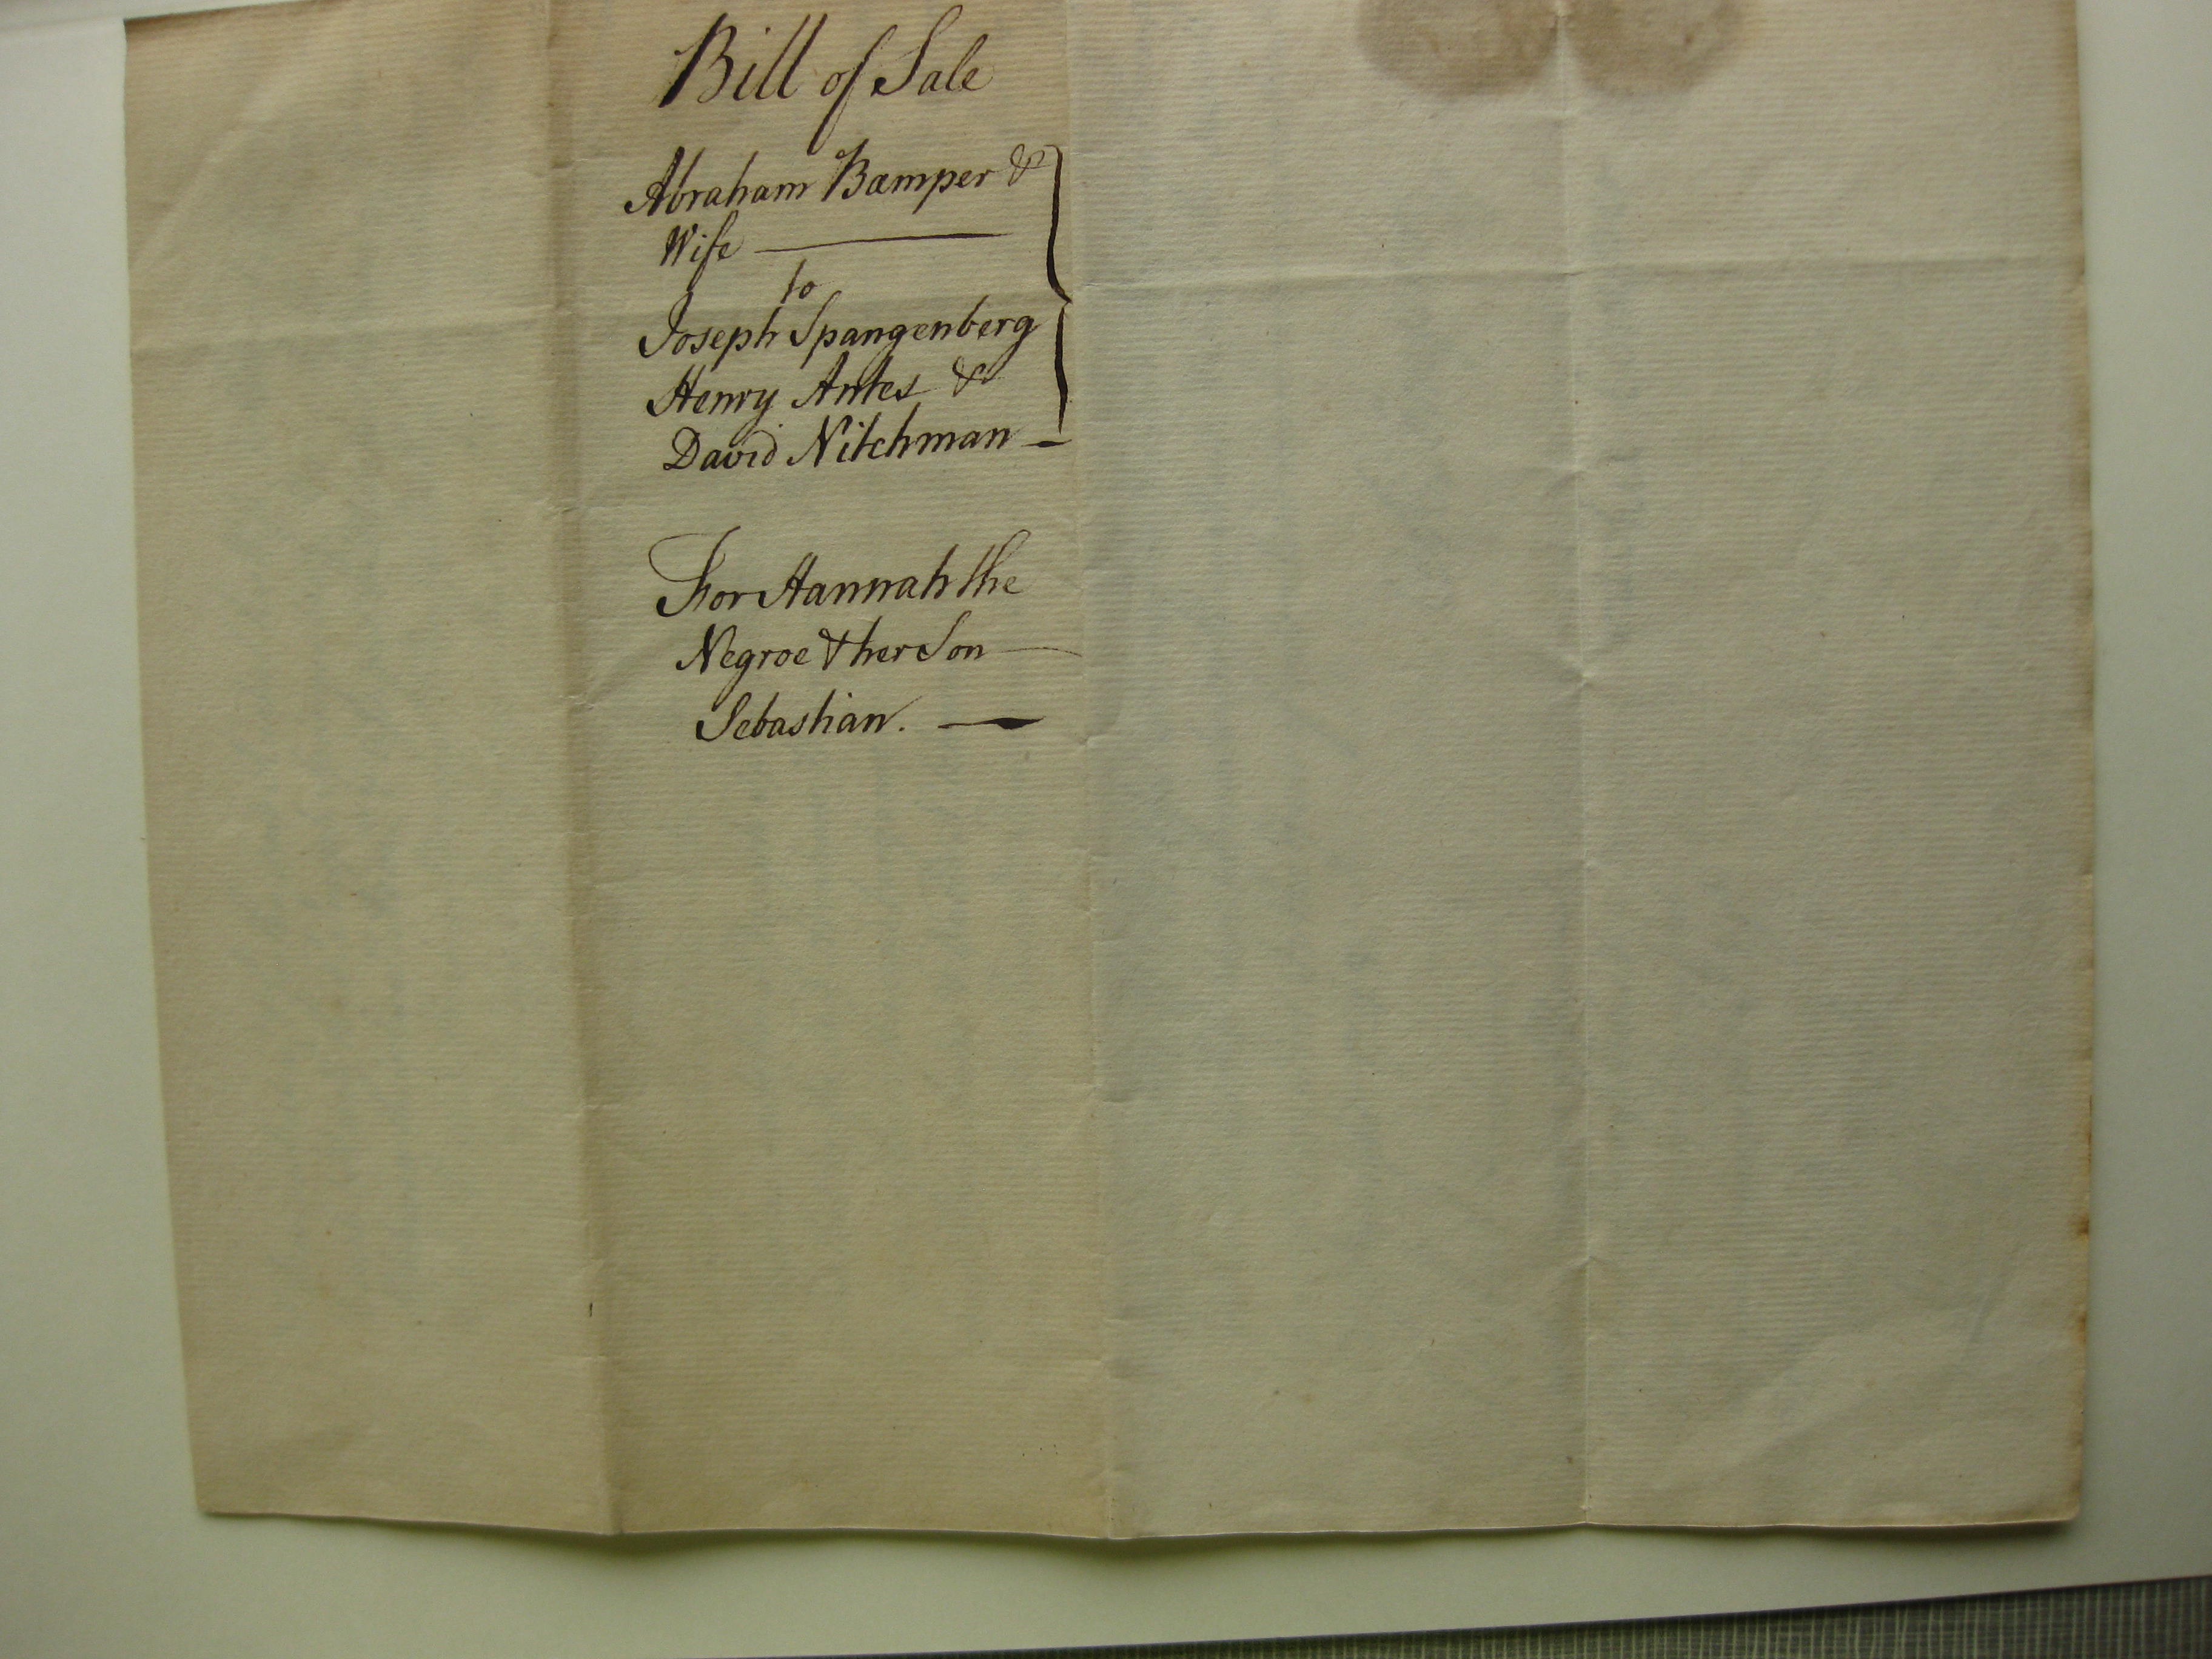 Bill of Sale
Abraham Bæmper &
Wife
to
Joseph Spangenberg
Henry Antes &
David Nitchman
For Hannah the
Negroe & her Son
Sebastian.